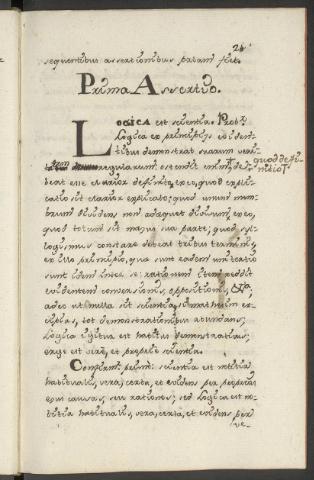 24
sequentibus assertionibus patam fiet.
Prima Assertio.
Logica est scientia. Prob.r
Logica ex principijs eviden-
tibus demonstrat suarum veri-
requiarum: ostendit enim, de- quod defi-
beat esse clarior definito, ex eo, quod expli- nitio
catio sit clarior explicato; quod unum mem-
brum dividens non adaequet divisum, ex eo,
quod totum sit maius sua parte; quod syl-
logismus constare debeat tribus terminis,
ex illo principio, quae sunt eadem uni tertio
sunt idem inter se: rationem item reddit
evidentem conversionis, oppositionis, &c.a
adeo ut nulla sit scientia, si mathim. ex-
cipias, tot demonstrationibus abundans;
Logica igitur est habitus demonstrativus;
ergo est vere, et proprie scientia.
Confirm. prim. scientia est notitia
habitualis, vera, certa, et evidens per propriam
rei causas, seu rationes; sed Logica est no-
titia habitualis, vera, certa, et evidens per
ve-